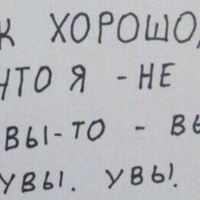 К ХОРОШО,
ЧТО Я - НЕ
ВЫ-ТО - ВЫ
УВЫ. УВЫ!